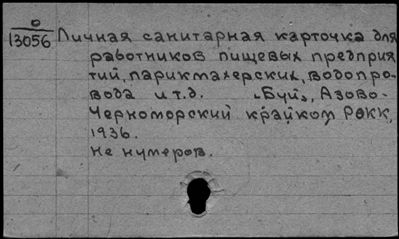 0
13056
Личная санитарная карточка для
работников пищевых предприя
тий, парикмахерских, водопро-
вода и т.д. "Буй", Азово-
Черноморский крайком РОКК,
1936.
Не нумеров.